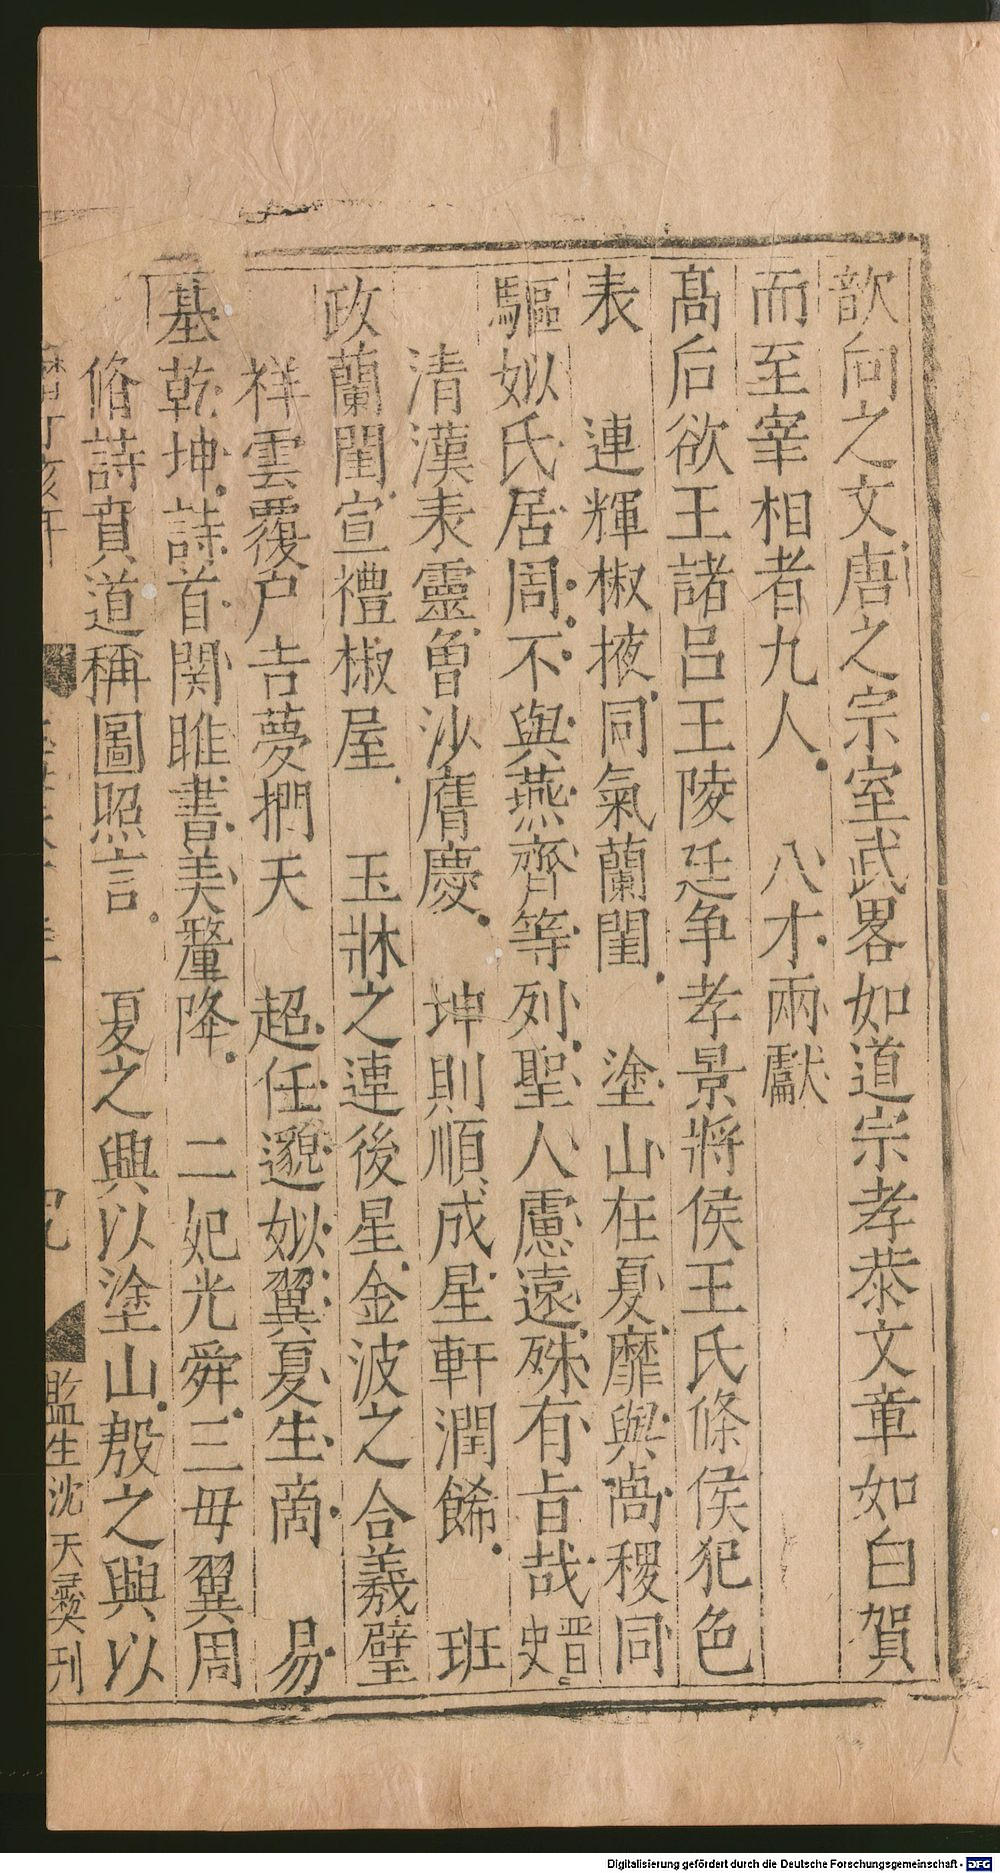 歆向之文唐之宗室武畧如道宗孝恭文章如白賀
而至宰相者九人　八才兩獻
髙后欲王諸呂王陵廷争孝景將侯王氏條侯犯色
表　連輝椒掖同氣蘭閨　塗山在夏靡與卨稷同
驅姒氏居周不與燕齊等列聖人慮遠殊有旨哉晋史
清漢表靈曾沙膺慶　坤則順成星軒潤餙　班
政蘭閨宣禮椒屋　玉牀之連後星金波之合羲璧
祥雲覆户吉夢捫天　超任邈姒翼夏生商　易
基乾坤詩首関雎書美釐降　二妃光舜三毋翼周
脩詩賁道稱圖照言　夏之興以塗山殷之興以
監生沈天彛刊
Digitalisierung gefördert durch die Deutsche Forschungsgemeinschaft - DFG